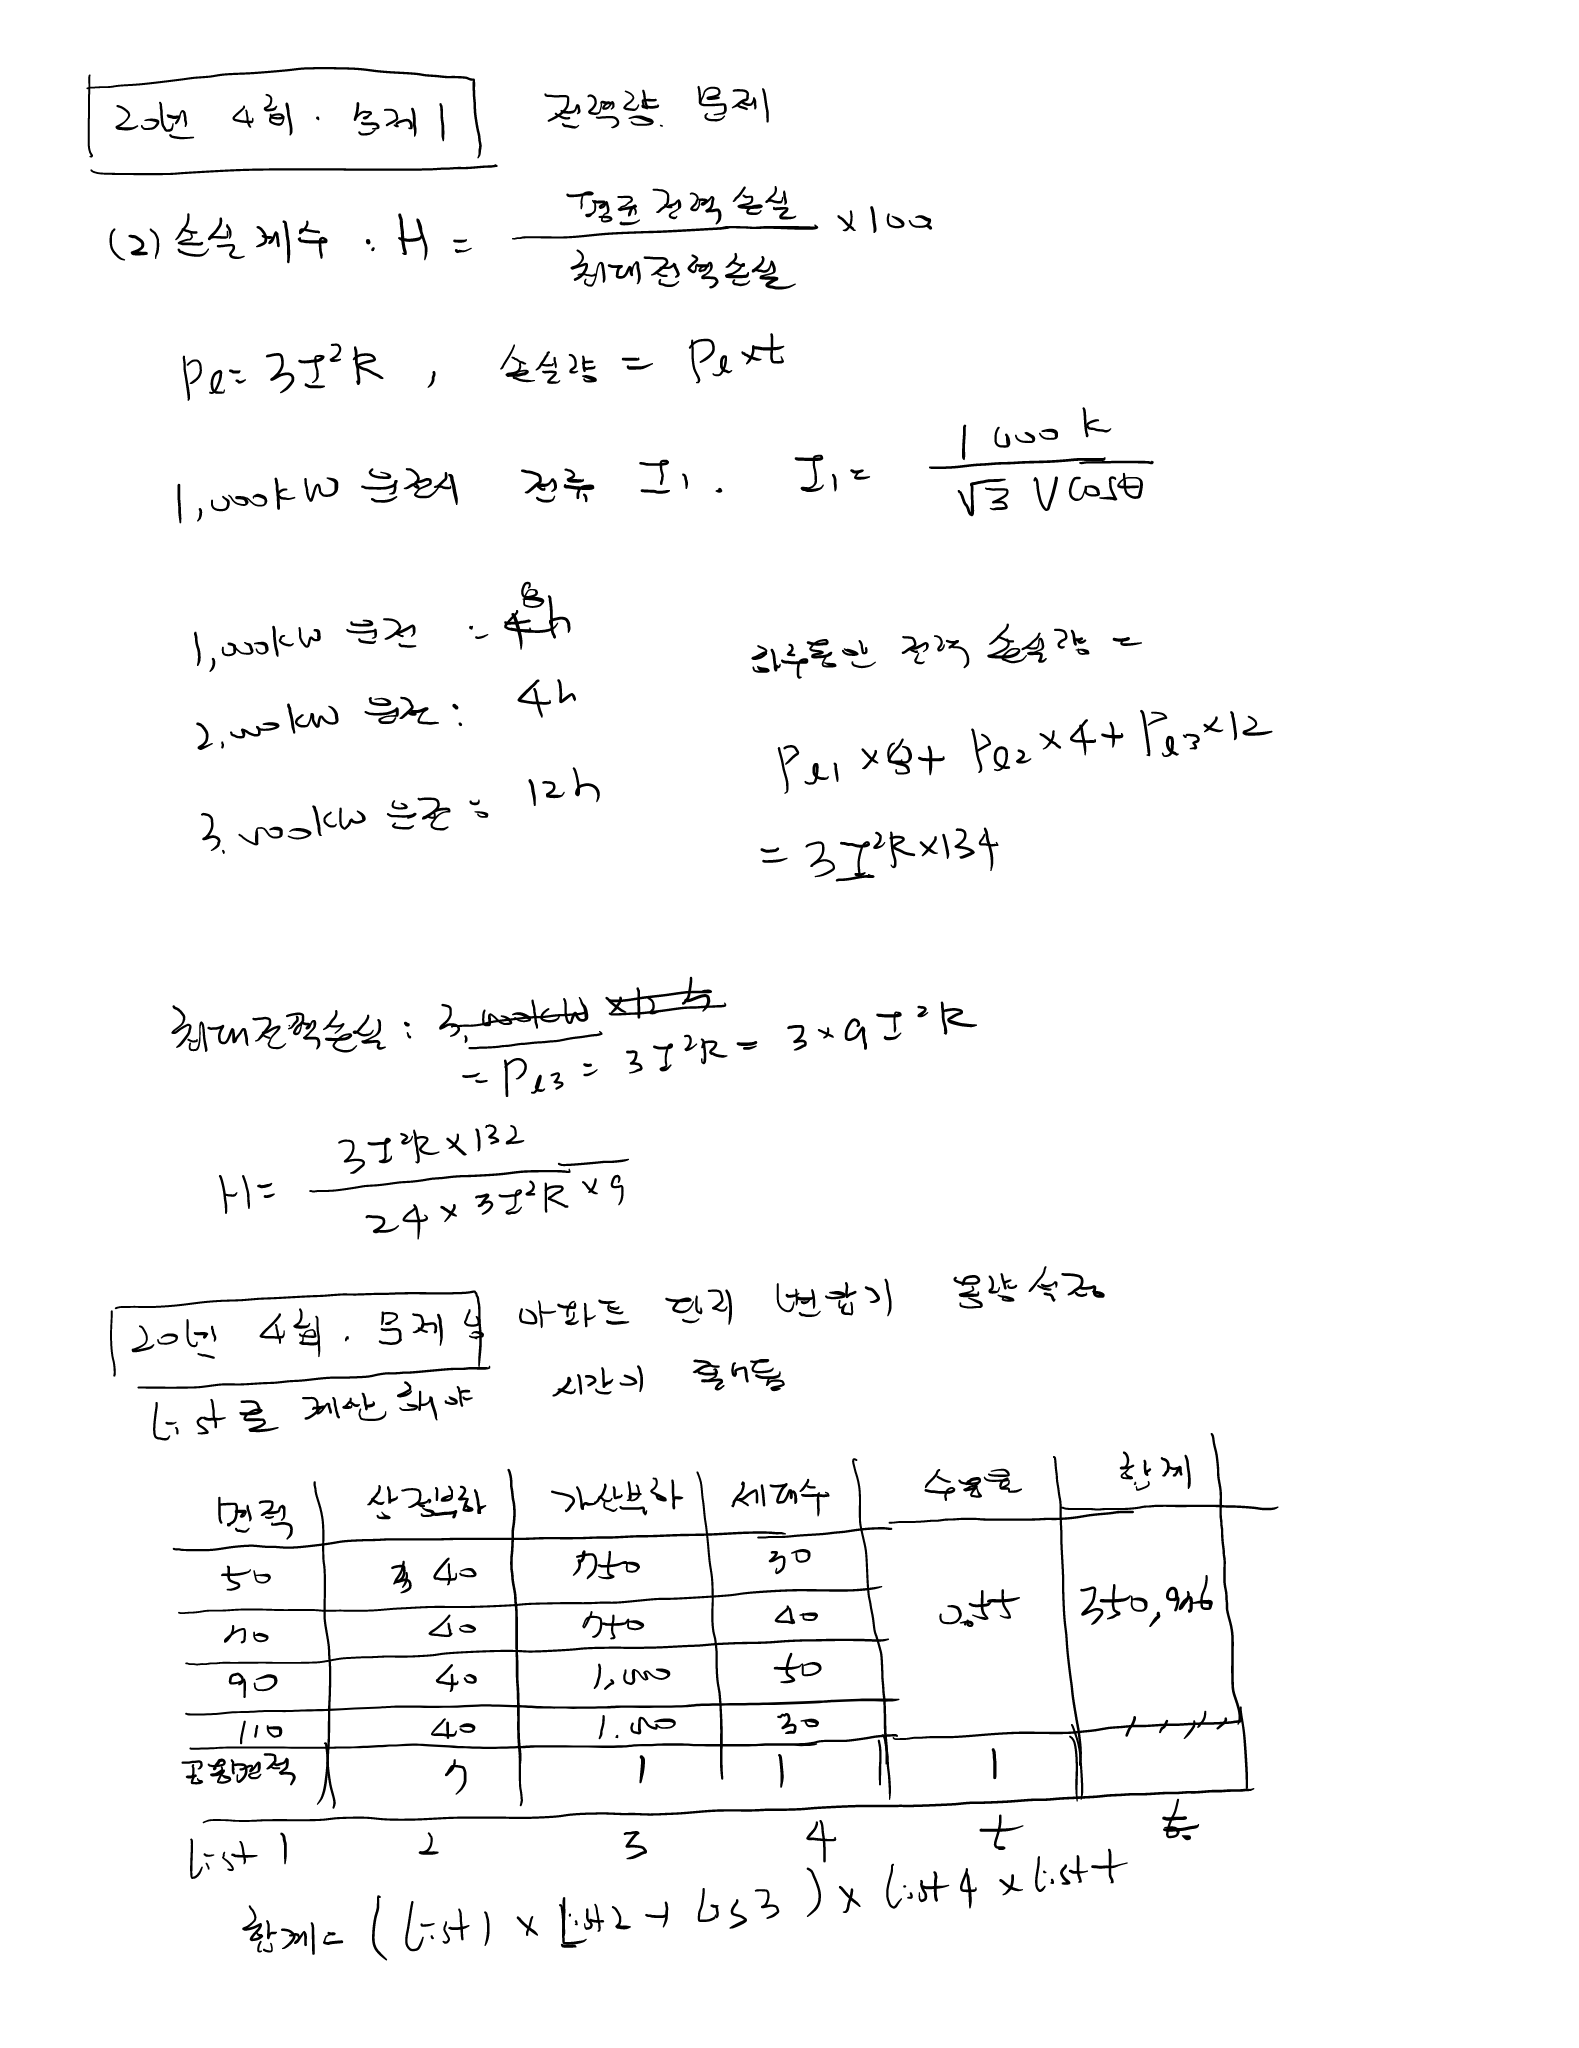 20년 4회. 문제 1 전력량 문제
(2) 손실계수 : H = 평균전력손실 / 최대전력손실 × 100
Pl = 3I²R , 손실량 = Pl×t
1,000kW 운전시 전류 I₁. I₁ = 1000k / √3 V cosθ
1,000kW 운전 : 8h
2,000kW 운전 : 4h
3,000kW 운전 : 12h
하루동안 전력 손실량 =
Pl1 ×8+ Pl2 ×4+ Pl3 ×12
= 3I²R×134
최대전력손실 : 3,000kW ×12h
= Pl3 = 3I²R = 3×9I²R
H = 3I²R×132 / 24×3I²R×9
20년 4회. 문제 아파트 단지 변압기 용량선정
list로 계산해야 시간이 줄어듬
면적 산정부하 가산부하 세대수 수용률 합계
50 40 750 30 0.55 350,
70 40 750 40
90 40 1,000 50
110 40 1,000 30
공용면적 7 1 1 1
list 1 2 3 4 5 6
합계= (list1 × list2 + lis3) × list4 × list5